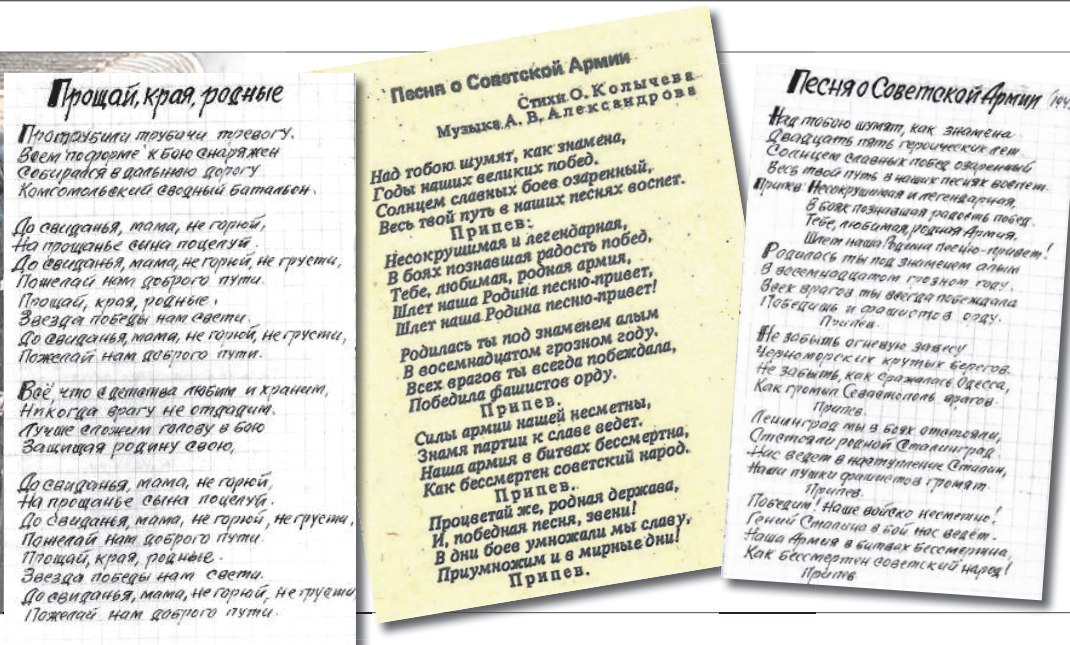 Прощай, края, родные
Протрубили трубачи тревогу.
Всем "по форме" к бою снаряжен
Собирался в дальнюю дорогу
Комсомольский сводный батальон.
До свиданья, мама, не горюй,
На прощанье сына поцелуй.
До свиданья, мама, не горюй, не грусти,
Пожелай нам доброго пути.
Прощай, края, родные.
Звезда победы нам свети.
До свиданья, мама, не горюй, не грусти,
Пожелай нам доброго пути.
Всё, что с детства любим и храним,
Никогда врагу не отдадим.
Лучше сложим голову в бою
Защищая родину свою,
До свиданья, мама, не горюй,
На прощанье сына поцелуй.
До свиданья, мама, не горюй, не грусти,
Пожелай нам доброго пути.
Прощай, края, родные.
Звезда победы нам свети.
До свиданья, мама, не горюй, не грусти
Пожелай нам доброго пути.
Песня о Советской Армии
Стихи О. Колычева
Музыка А. В. Александрова
Над тобою шумят, как знамена,
Годы наших великих побед.
Солнцем славных боев озаренный,
Весь твой путь в наших песнях воспет.
Припев:
Несокрушимая и легендарная,
В боях познавшая радость побед,
Тебе, любимая, родная армия,
Шлет наша Родина песню-привет,
Шлет наша Родина песню-привет!
Родилась ты под знаменем алым
В восемнадцатом грозном году.
Всех врагов ты всегда побеждала,
Победила фашистов орду.
Припев.
Силы армии нашей несметны,
Знамя партии к славе ведет.
Наша армия в битвах бессмертна,
Как бессмертен советский народ.
Припев.
Процветай же, родная держава,
И, победная песня, звени!
В дни боев умножали мы славу,
Приумножим и в мирные дни!
Припев.
Песня о Советской Армии
Над тобою шумят, как знамена
Двадцать пять героических лет.
Солнцем славных побед озаренный
Весь твой путь в наших песнях воспет.
Припев: Несокрушимая и легендарная,
В боях познавшая радость побед.
Тебе, любимая, родная Армия,
Шлет наша Родина песню-привет!
Родилась ты под знаменем алым
В восемнадцатом грозном году.
Всех врагов ты всегда побеждала
Победишь и фашистов орду.
Припев.
Не забыть огневую завесу
Черноморских крутых берегов.
Не забыть, как сражалась Одесса,
Как громил Севастополь врагов.
Припев.
Ленинград мы в боях отстояли,
Отстояли родной Сталинград.
Нас ведет в наступление Сталин,
Наши пушки фашистов громят.
Припев.
Победим! Наше войско несметно!
Гений Сталина в бой нас ведёт.
Наша Армия в битвах бессмертна,
Как бессмертен советский народ!
Припев.